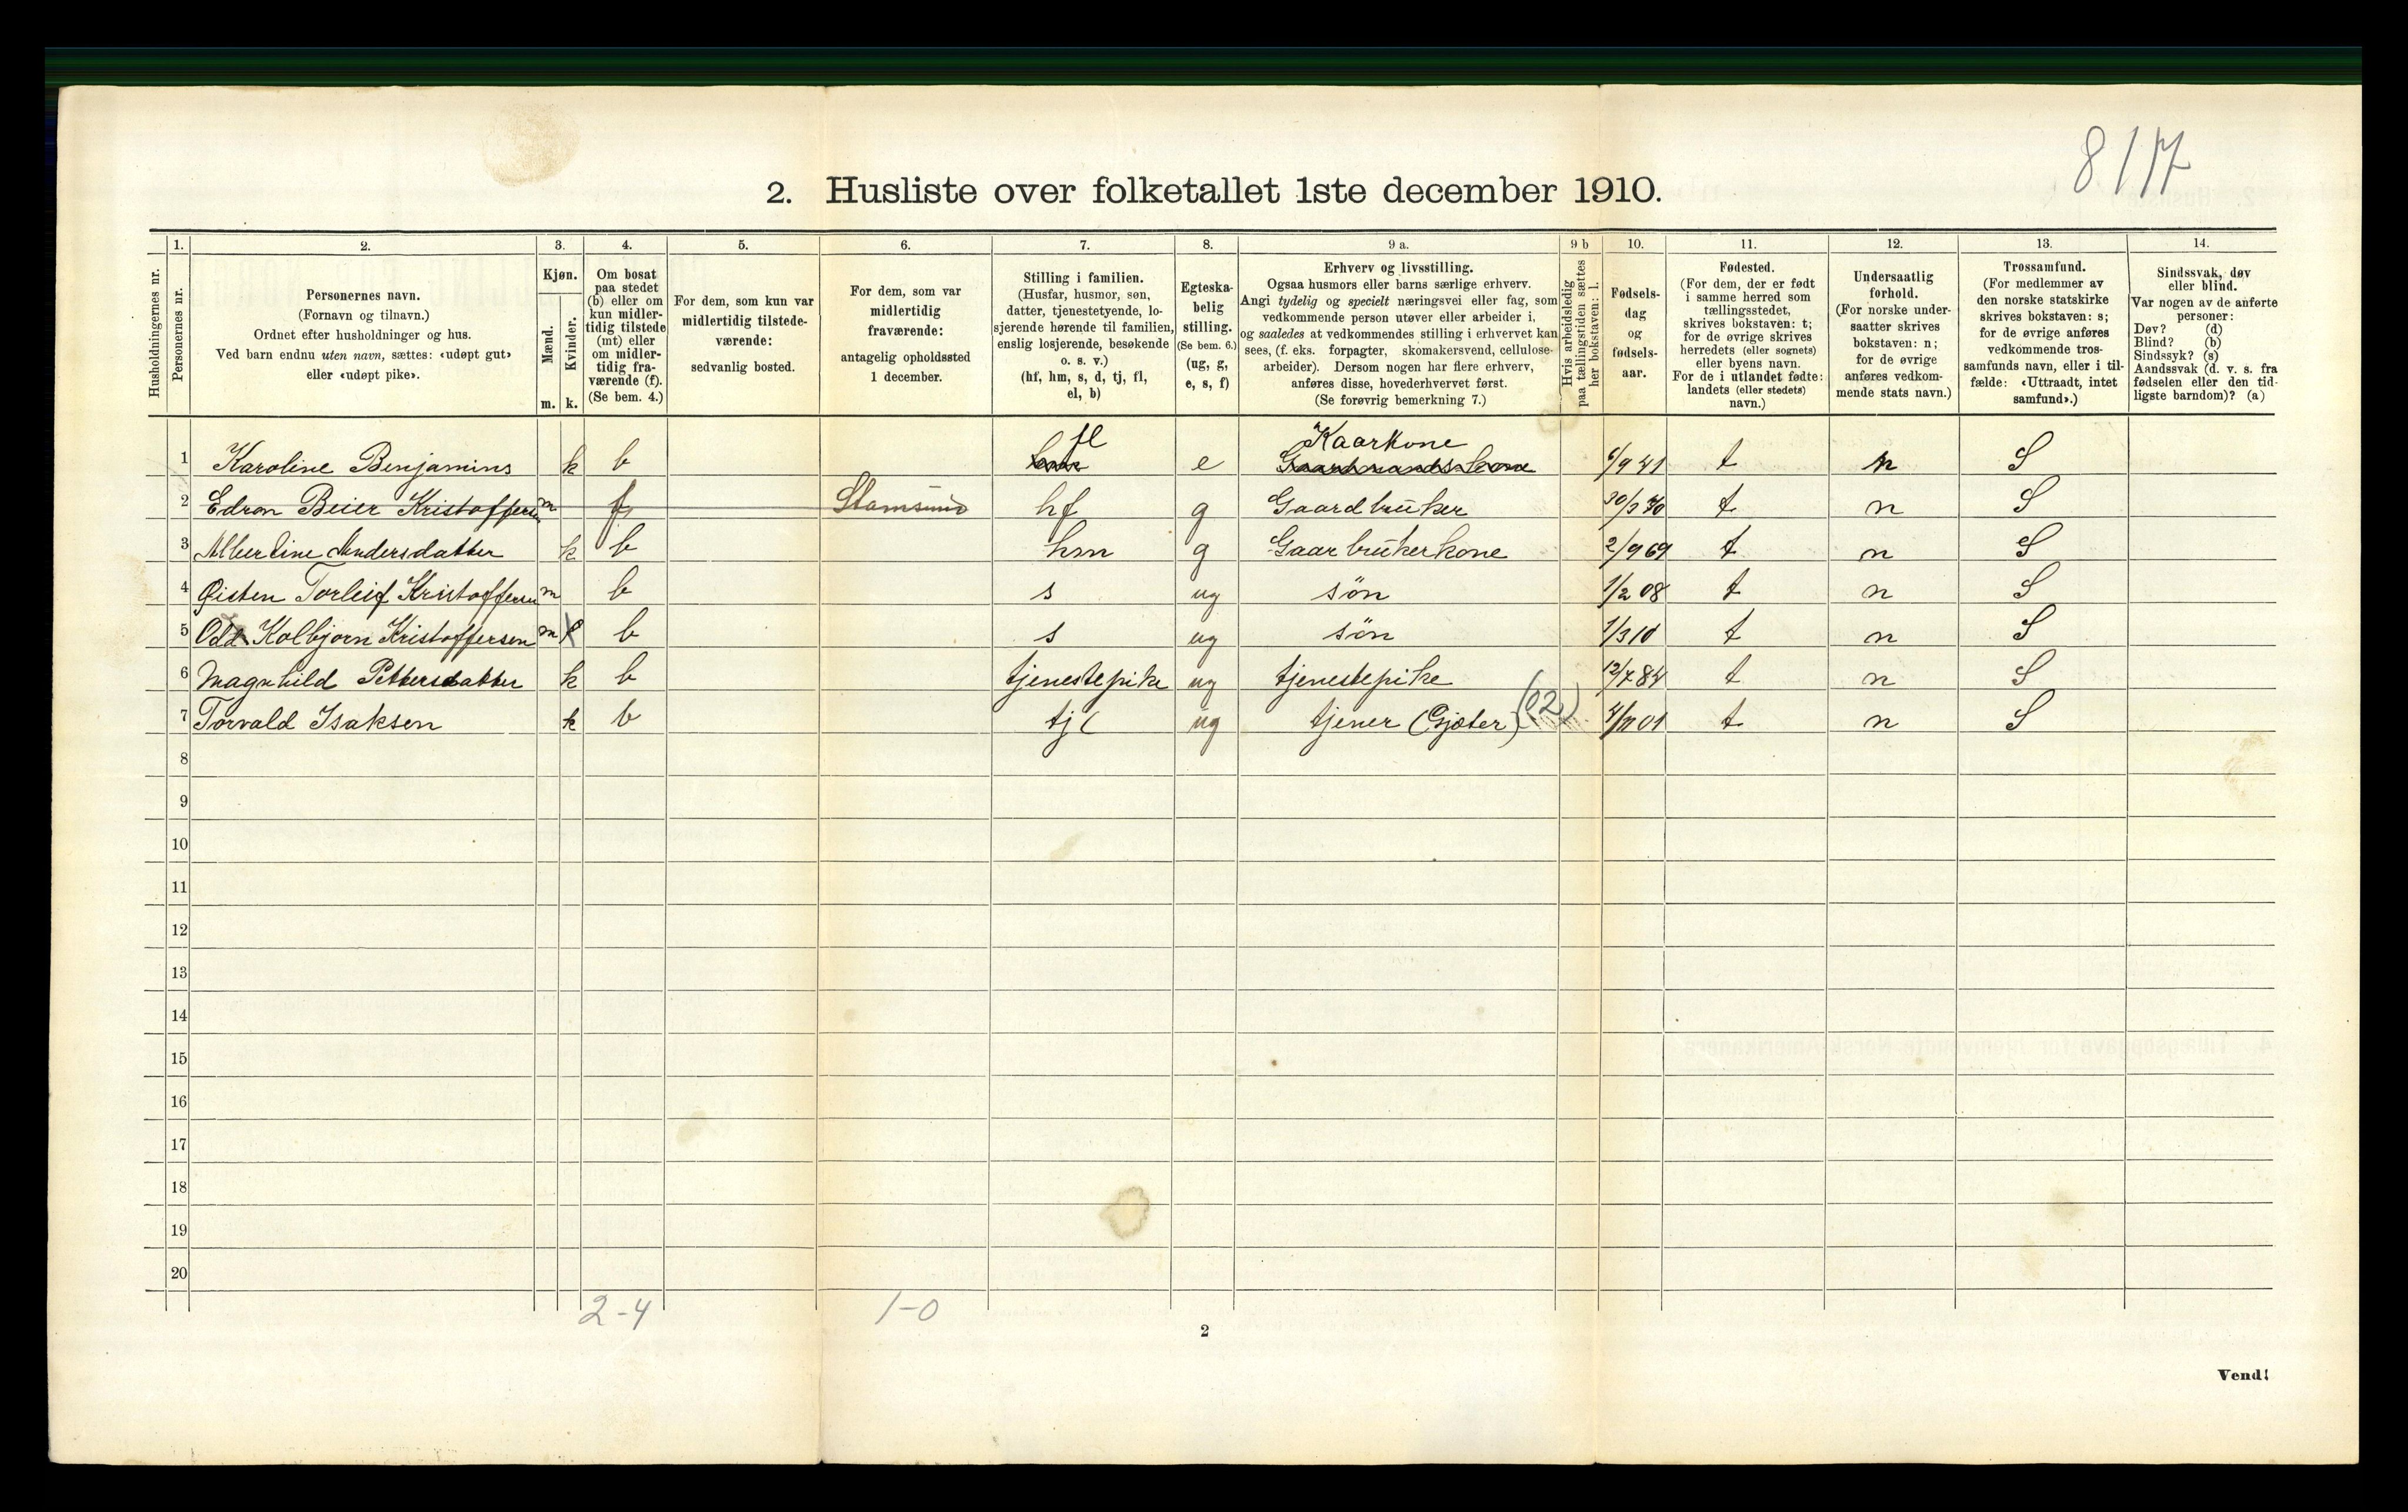 8/17
2. Husliste over folketallet 1ste december 1910.
Husholdningernes nr.
1. Personernes nr.
2. Personernes navn. (Fornavn og tilnavn.) Ordnet efter husholdninger og hus. Ved barn endnu uten navn, sættes: «udøpt gut» eller «udøpt pike».
3. Kjøn. Mænd. m. Kvinder. k.
4. Om bosat paa stedet (b) eller om kun midler- tidig tilstede (mt) eller om midler- tidig fra- værende (f). (Se bem. 4.)
5. For dem, som kun var midlertidig tilstede- værende: sedvanlig bosted.
6. For dem, som var midlertidig fraværende: antagelig opholdssted 1 december.
7. Stilling i familien. (Husfar, husmor, søn, datter, tjenestetyende, lo- sjerende hørende til familien, enslig losjerende, besøkende o. s. v.) (hf, hm, s, d, tj, fl, el, b)
8. Egteska- belig stilling. (Se bem. 6.) (ug, g, e, s, f)
9 a. Erhverv og livsstilling. Ogsaa husmors eller barns særlige erhverv. Angi tydelig og specielt næringsvei eller fag, som vedkommende person utøver eller arbeider i, og saaledes at vedkommendes stilling i erhvervet kan sees, (f. eks. forpagter, skomakersvend, cellulose- arbeider). Dersom nogen har flere erhverv, anføres disse, hovederhvervet først. (Se forøvrig bemerkning 7.)
9 b Hvis arbeidsledig paa tællingstiden sættes her bokstaven: l.
10. Fødsels- dag og fødsels- aar.
11. Fødested. (For dem, der er født i samme herred som tællingsstedet, skrives bokstaven: t; for de øvrige skrives herredets (eller sognets) eller byens navn. For de i utlandet fødte: landets (eller stedets) navn.)
12. Undersaatlig forhold. (For norske under- saatter skrives bokstaven: n; for de øvrige anføres vedkom- mende stats navn.)
13. Trossamfund. (For medlemmer av den norske statskirke skrives bokstaven: s; for de øvrige anføres vedkommende tros- samfunds navn, eller i til- fælde: «Uttraadt, intet samfund».)
14. Sindssvak, døv eller blind. Var nogen av de anførte personer: Døv? (d) Blind? (b) Sindssyk? (s) Aandssvak (d. v. s. fra fødselen eller den tid- ligste barndom)? (a)
1 Karoline Benjamins k b fl e Kaarkone Gaardmandskone 6/9 41 t n S
2 Edron Beier Kristoffersen m f Stamsund hf g Gaardbruker 30/3 70 t n S
3 Albertine Andersdatter k b hm g Gaarbrukerkone 2/9 69 t n S
4 Øisten Torleif Kristoffersen m b s ug søn 1/2 08 t n S
5 Odd Kolbjorn Kristoffersen m b s ug søn 1/3 10 t n S
6 Magnhild Pettersdatter k b tjenestepike ug tjenestepike 12/7 84 t n S
7 Torvald Isaksen k b tj ( ug tjener (Gjæter) (02) 4/11 01 t n S
8
9
10
11
12
13
14
15
16
17
18
19
20
2-4 1-0
2
Vend!